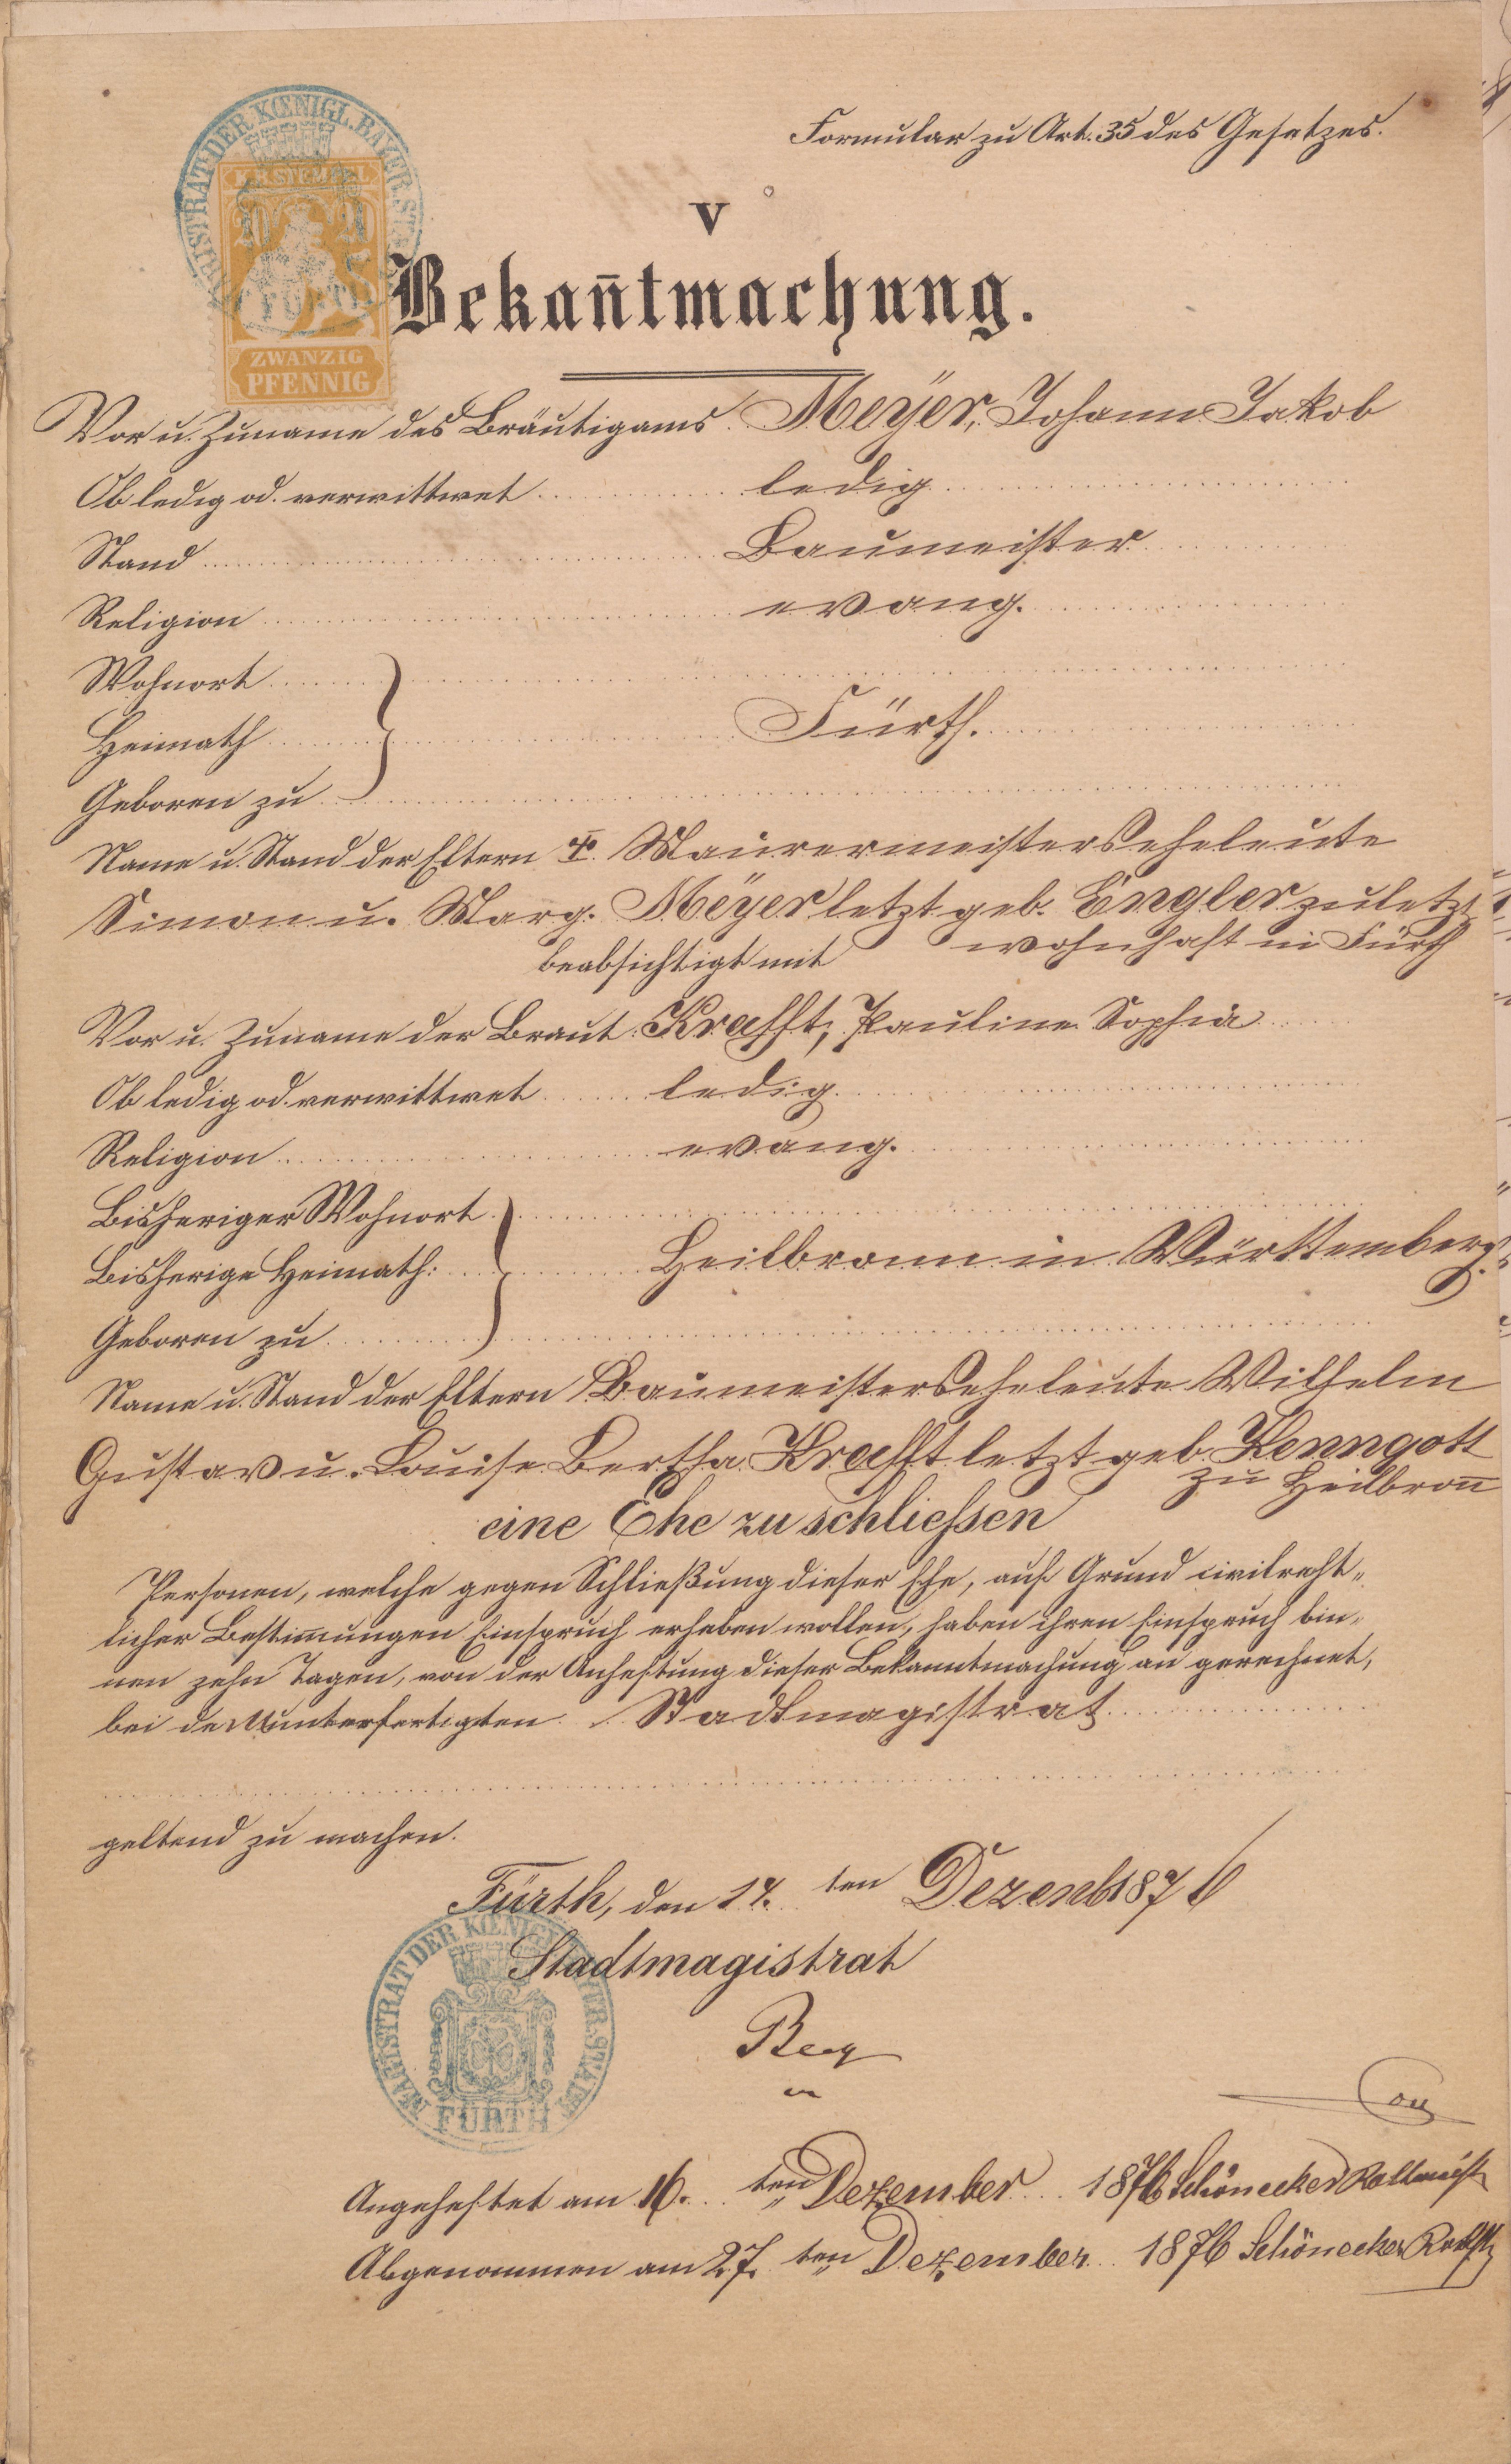 MAGISTRAT DER KŒNIGL. BAYER. STADT
FÜRTH
K.B. STEMPEL
20 20
ZWANZIG
PFENNIG
Formular zu Art. 35 des Gesetzes.
V
Bekañtmachung.
Vor u. Zuname des Bräutigams Meÿer, Johann Jakob
Ob ledig od. verwittwet ledig
Stand Baumeister
Religion evang.
Wohnort
Heimath Fürth.
Geboren zu
Name u. Stand der Eltern Maurermeisterseheleute
Simon u. Marg. Meÿer letzt geb. Engler zuletzt
wohnhaft in Fürth
beabsichtigt mit
Vor u. Zuname der Braut: Krafft, Pauline Sophia
Ob ledig od. verwittwet ledig
Religion evang.
Bisheriger Wohnort
Bisherige Heimath: Heilbronn in Württemberg.
Geboren zu
Name u. Stand der Eltern Baumeisterseheleute Wilhelm
Gustav u. Louise Bertha Krafft letzt geb. Kenngott
zu Heilbroñ
eine Ehe zu schliessen
Personen, welche gegen Schließung dieser Ehe, auf Grund civilrecht-
licher Bestim̄ungen Einspruch erheben wollen, haben ihren Einspruch bin-
nen zehn Tagen, von der Anheftung dieser Bekanntmachung an gerechnet,
bei dem unterfertigten Stadtmagistrat
geltend zu machen.
Fürth, den 14. ten Dezemb 1876
Stadtmagistrat
MAGISTRAT DER KŒNIGL. BAYER. STADT
FÜRTH
Angeheftet am 16. ten Dezember 1876 Schönecker Rottmeist
Abgenommen am 27. ten Dezember 1876 Schönecker